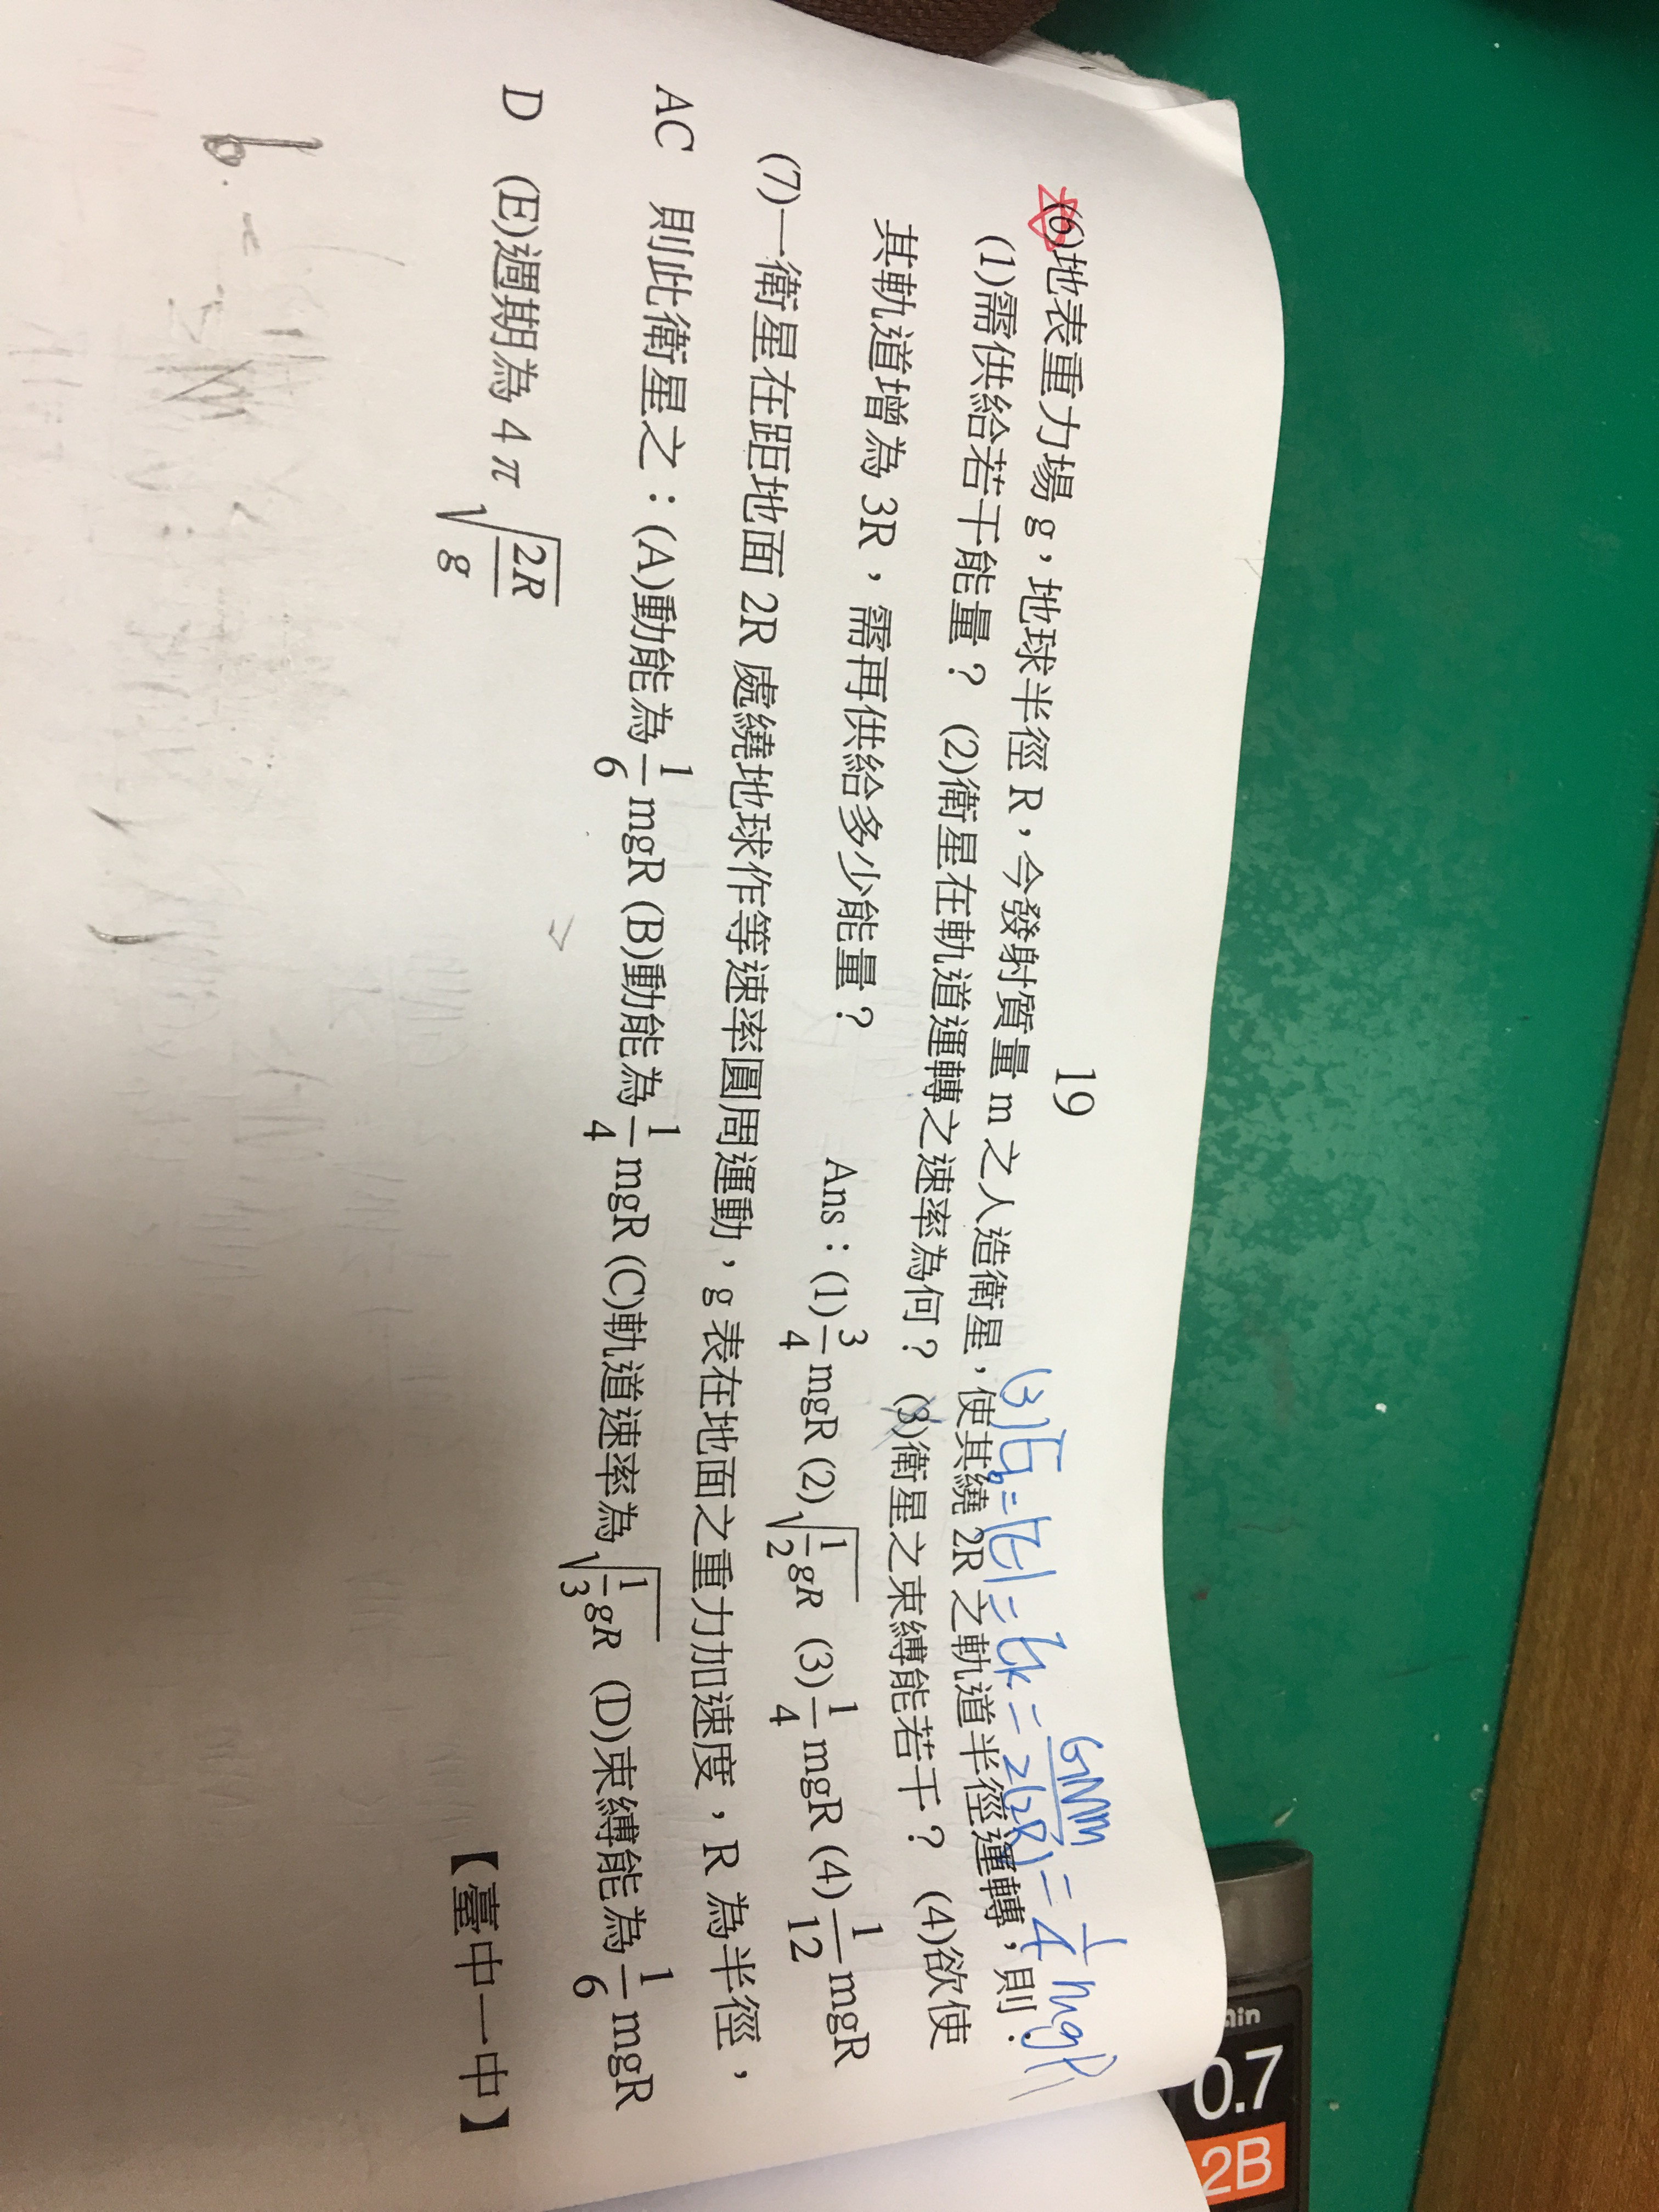 19
(3) E_b = |E| = E_k = GMm/2(2R) = 1/4 mgR
(6)地表重力場 g，地球半徑 R，今發射質量 m 之人造衛星，使其繞 2R 之軌道半徑運轉，則：
(1)需供給若干能量？ (2)衛星在軌道運轉之速率為何？ (3)衛星之束縛能若干？ (4)欲使
其軌道增為 3R，需再供給多少能量？ Ans：(1) 3/4 mgR (2) √(1/2 gR) (3) 1/4 mgR (4) 1/12 mgR
(7)一衛星在距地面 2R 處繞地球作等速率圓周運動，g 表在地面之重力加速度，R 為半徑，
AC 則此衛星之：(A)動能為 1/6 mgR (B)動能為 1/4 mgR (C)軌道速率為 √(1/3 gR) (D)束縛能為 1/6 mgR
D (E)週期為 4π √(2R/g) 【臺中一中】
6.
0.7
2B